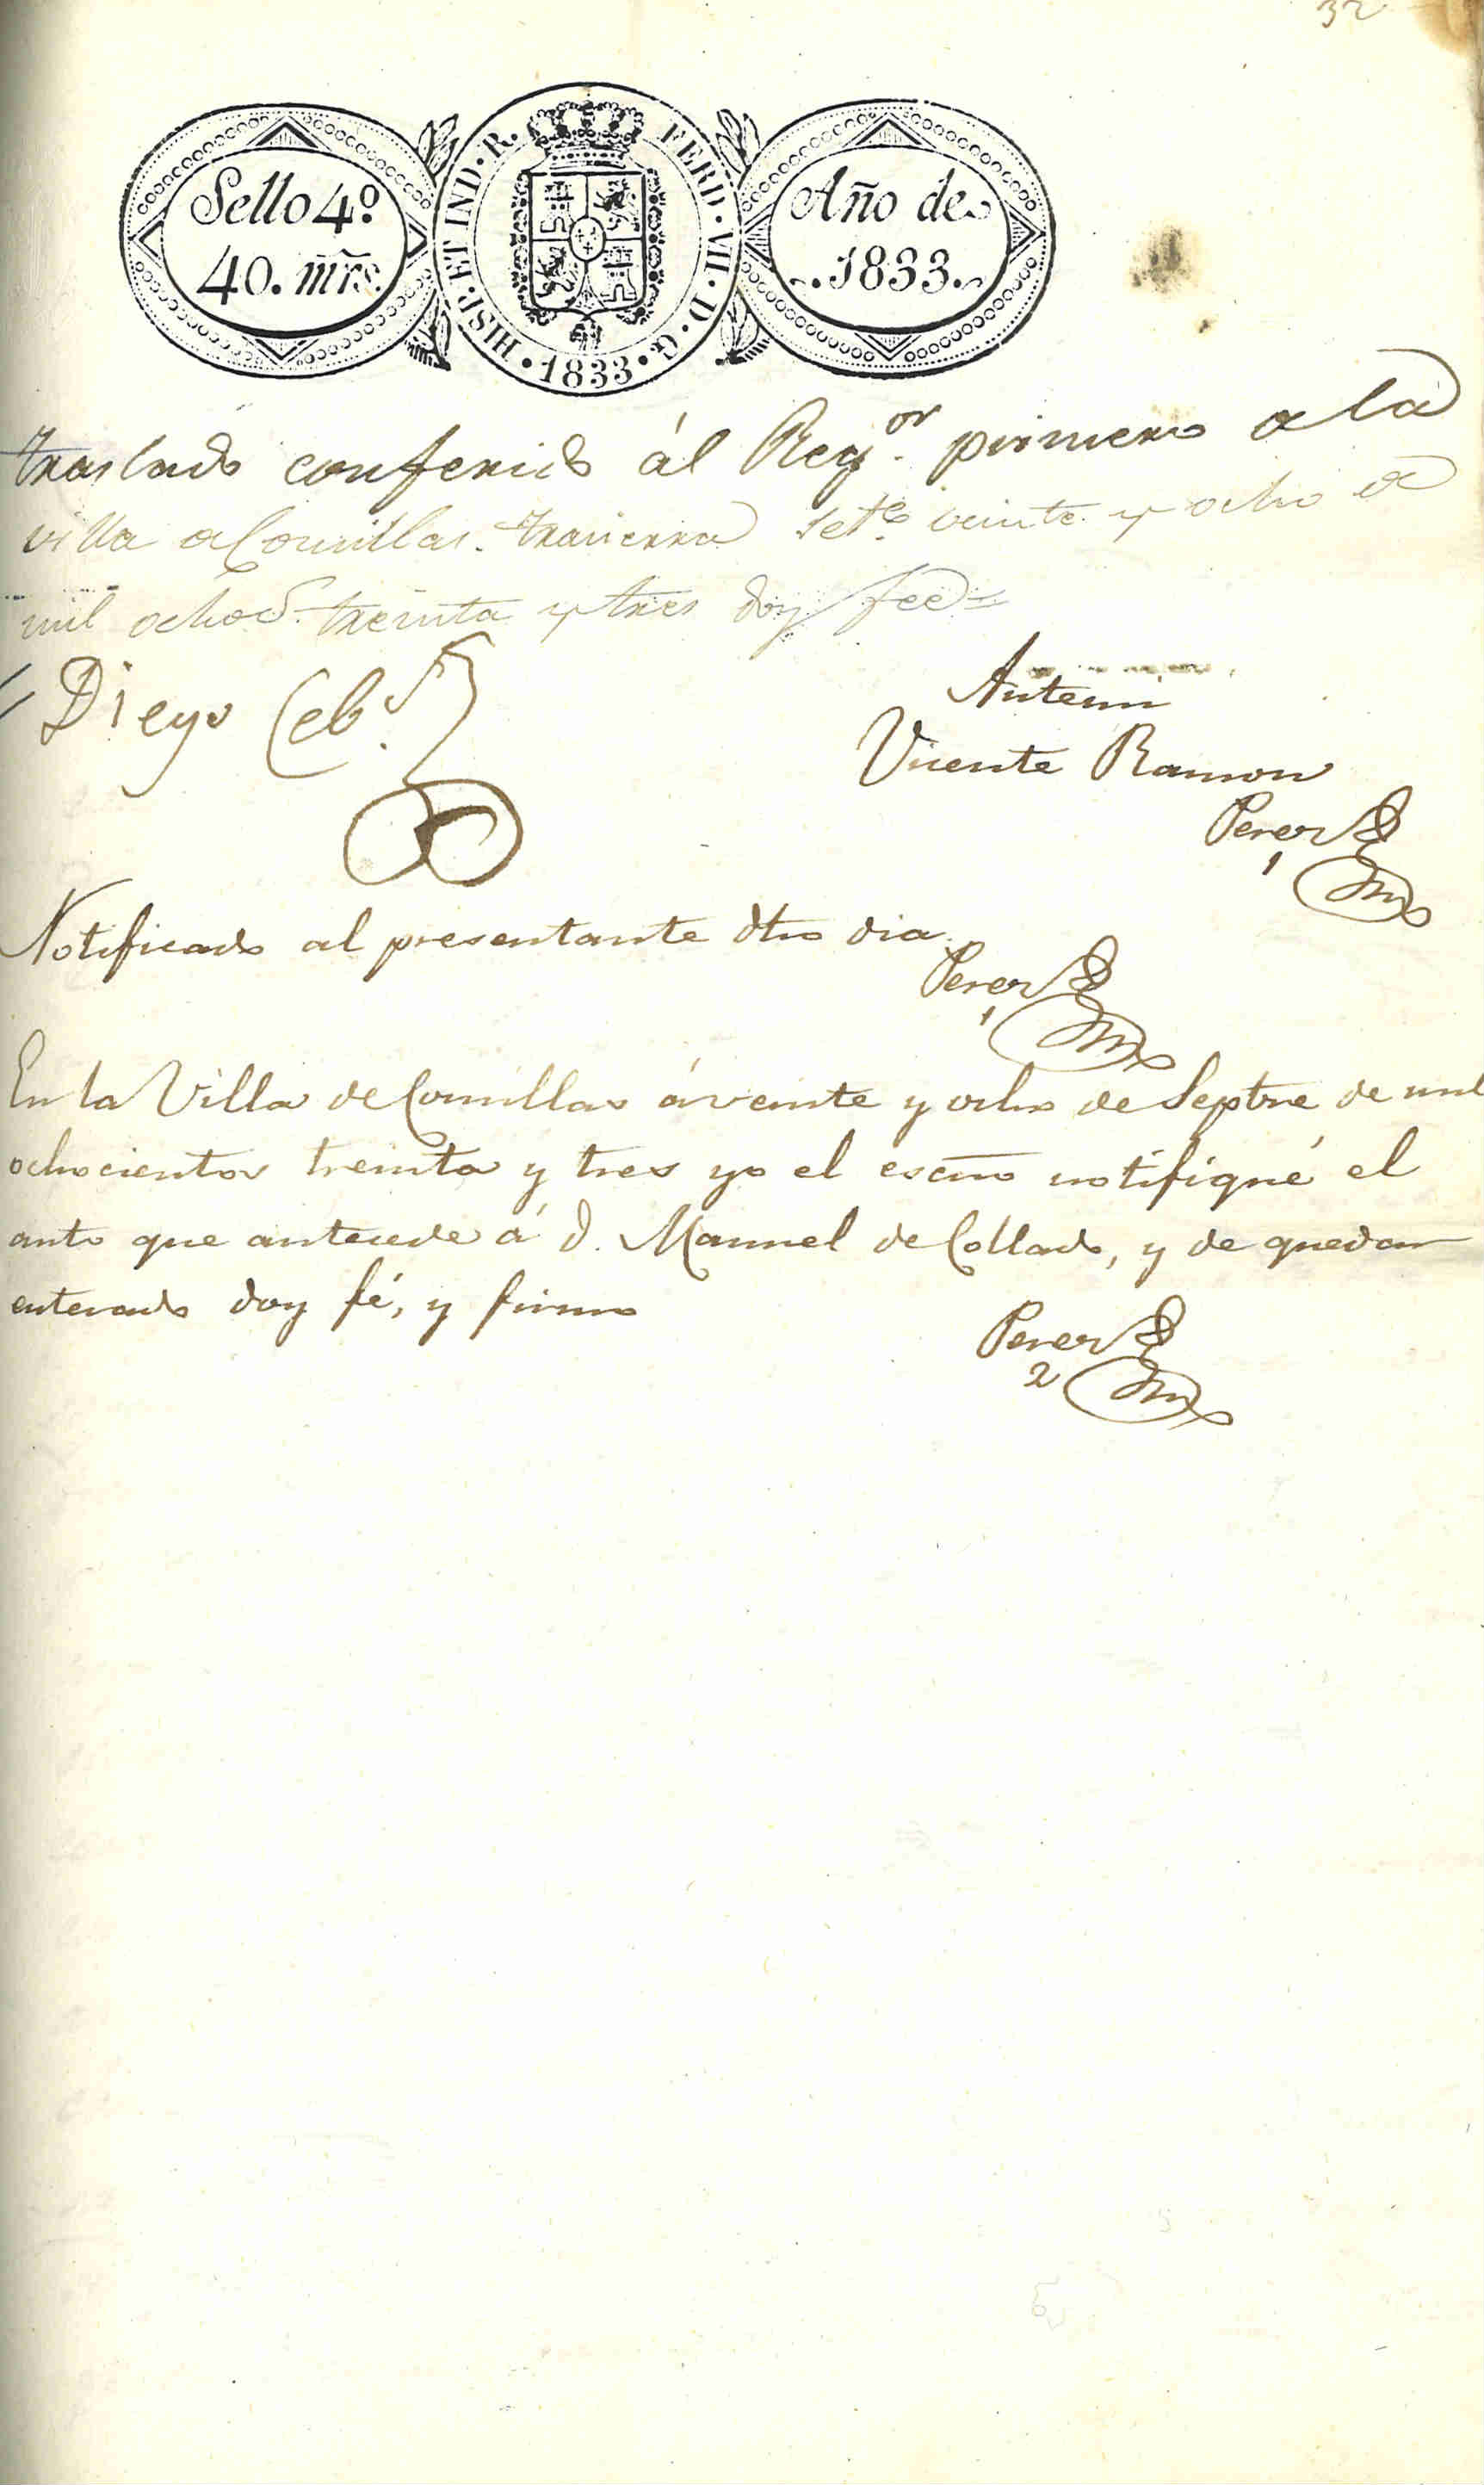 32
Sello 4º
40. mrs.
HISP. ET IND. R. FERD. VII. D. G. 1833.
Año de
1833.
traslado conferido ál Regor. primero de la
villa de Comillas. Travierra Sete. veinte y ocho de
mil ochocs. treinta y tres doy fee =
Diego Cebs.
Antemi
Vicente Ramon
Perez
1
Notificado al presentante dho dia.
Perez
1
En la Villa de Comillas á veinte y ocho de Septre de mil
ochocientos treinta y tres yo el escno notifiqué el
auto que antecede á D. Manuel de Collado, y de quedar
enterado doy fé, y firmo
Perez
2